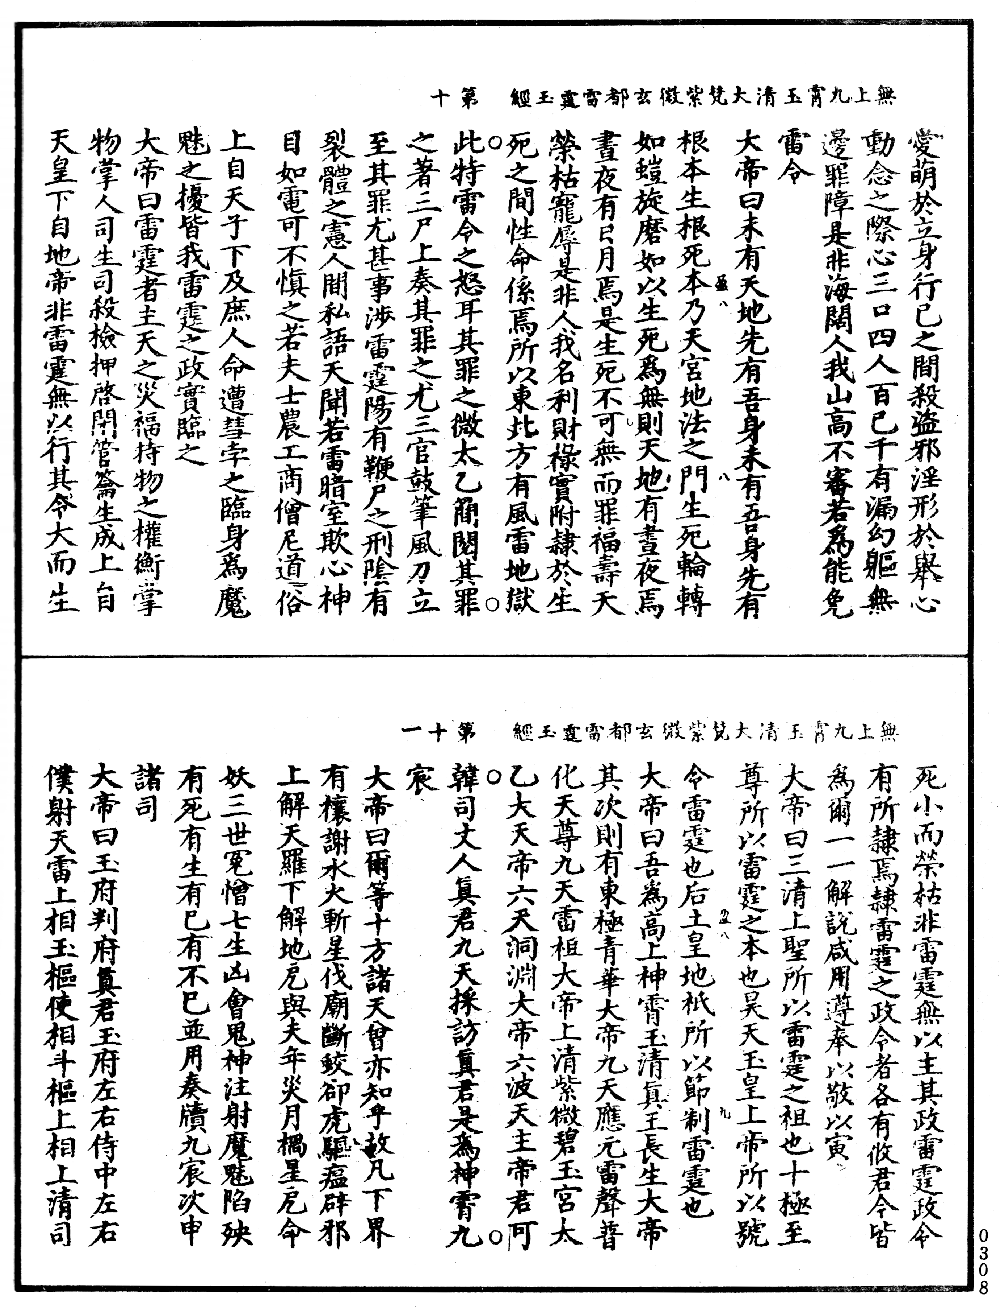 無上九霄玉清大梵紫微玄都雷霆玉經 第十
愛萌於立身行已之間殺盜邪淫形於舉心
動念之際心三口四人百已千有漏幻軀無
邊罪障是非海闊人我山高不審若為能免
雷令
大帝曰未有天地先有吾身未有吾身先有
根本生根死本乃天宮地法之門生死輪轉
如螘旋磨如以生死爲無則天地有晝夜焉
晝夜有日月焉是生死不可無而罪福壽夭
榮枯寵辱是非人我名利財祿實附隷於生
死之間性命係焉所以東北方有風雷地獄
此特雷令之怒耳其罪之微太乙簡閱其罪
之著三尸上奏其罪之尤三官鼓筆風刀立
至其罪尤甚事涉雷霆陽有鞭尸之刑陰有
裂體之憲人間私語天聞若雷暗室欺心神
目如電可不慎之若夫士農工商僧尼道俗
上自天子下及庶人命遭彗孛之臨身為魔
魅之擾皆我雷霆之政實臨之
大帝曰雷霆者主天之災福持物之權衡掌
物掌人司生司殺檢押啓閉管籥生成上自
天皇下自地帝非雷霆無以行其令大而生
無上九霄玉清大梵紫微玄都雷霆玉經 第十一
死小而榮枯非雷霆無以主其政雷霆政令
有所隷焉隷雷霆之政令者各有攸君令皆
為爾一一解說咸用遵奉以敬以寅
大帝曰三清上聖所以雷霆之祖也十極至
尊所以雷霆之本也昊天玉皇上帝所以號
令雷霆也后土皇地祇所以節制雷霆也
大帝曰吾為高上神霄玉清真王長生大帝
其次則有東極青華大帝九天應元雷聲普
化天尊九天雷祖大帝上清紫微碧玉宮太
乙大天帝六天洞淵大帝六波天主帝君可
韓司丈人真君九天採訪真君是為神霄九
宸
大帝曰爾等十方諸天曾亦知乎故凡下界
有禳謝水火斬星伐廟斷蛟卻虎驅瘟辟邪
上解天羅下解地戹與夫年災月楇星戹命
妖三世冤憎七生凶會鬼神注射魔魅陷殃
有死有生有巳有不巳並用奏牘九宸次申
諸司
大帝曰玉府判府真君玉府左右侍中左右
僕射天雷上相玉樞使相斗樞上相上清司
0308